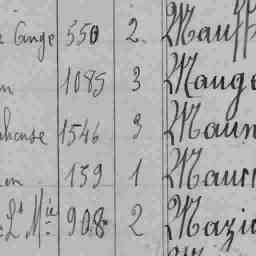 Ange 550 2. Mauff
n 1085 3 Mauge
phonse 1546 3 Maun
en 159 1 Mauri
Ls Mie 908 2 Mazi